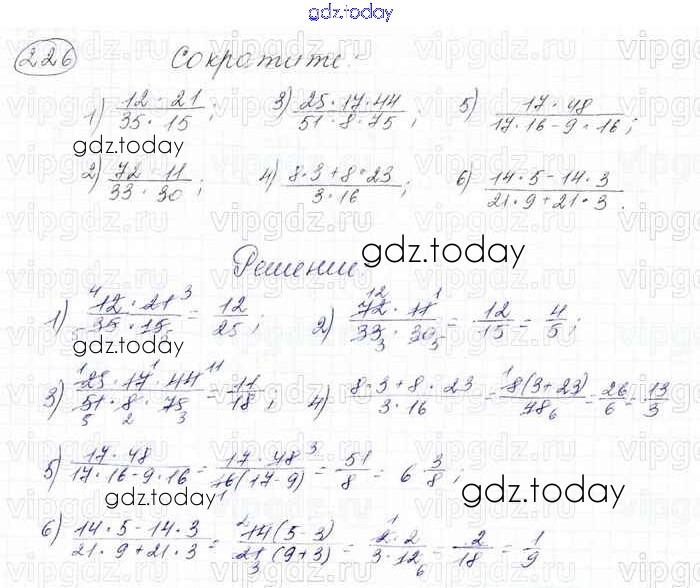 gdz.today
226 Сократите:
1) (12 · 21)/(35 · 15); 3) (25 · 17 · 44)/(51 · 8 · 75); 5) (17 · 48)/(17 · 16 - 9 · 16);
gdz.today
2) (72 · 11)/(33 · 30); 4) (8 · 3 + 8 · 23)/(3 · 16); 6) (14 · 5 - 14 · 3)/(21 · 9 + 21 · 3).
Решение: gdz.today
1) (12 · 21)/(35 · 15) = 12/25; 2) (72 · 11)/(33 · 30) = 12/15 = 4/5;
gdz.today
3) (25 · 17 · 44)/(51 · 8 · 75) = 11/18; 4) (8 · 3 + 8 · 23)/(3 · 16) = 8(3 + 23)/48 = 26/6 = 13/3
5) (17 · 48)/(17 · 16 - 9 · 16) = (17 · 48)/(16(17 - 9)) = 51/8 = 6 3/8;
gdz.today gdz.today
6) (14 · 5 - 14 · 3)/(21 · 9 + 21 · 3) = 14(5 - 3)/21(9 + 3) = (2 · 2)/(3 · 12) = 2/18 = 1/9